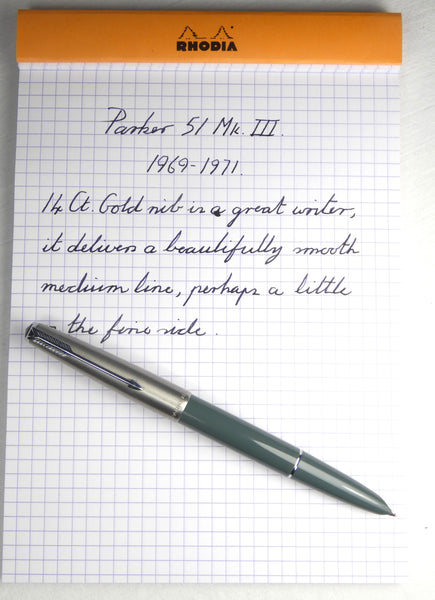 RHODIA
Parker 51 Mk. III.
1969-1971.
14 Ct. Gold nib is a great writer,
it delivers a beautifully smooth
medium line, perhaps a little
the fine side.